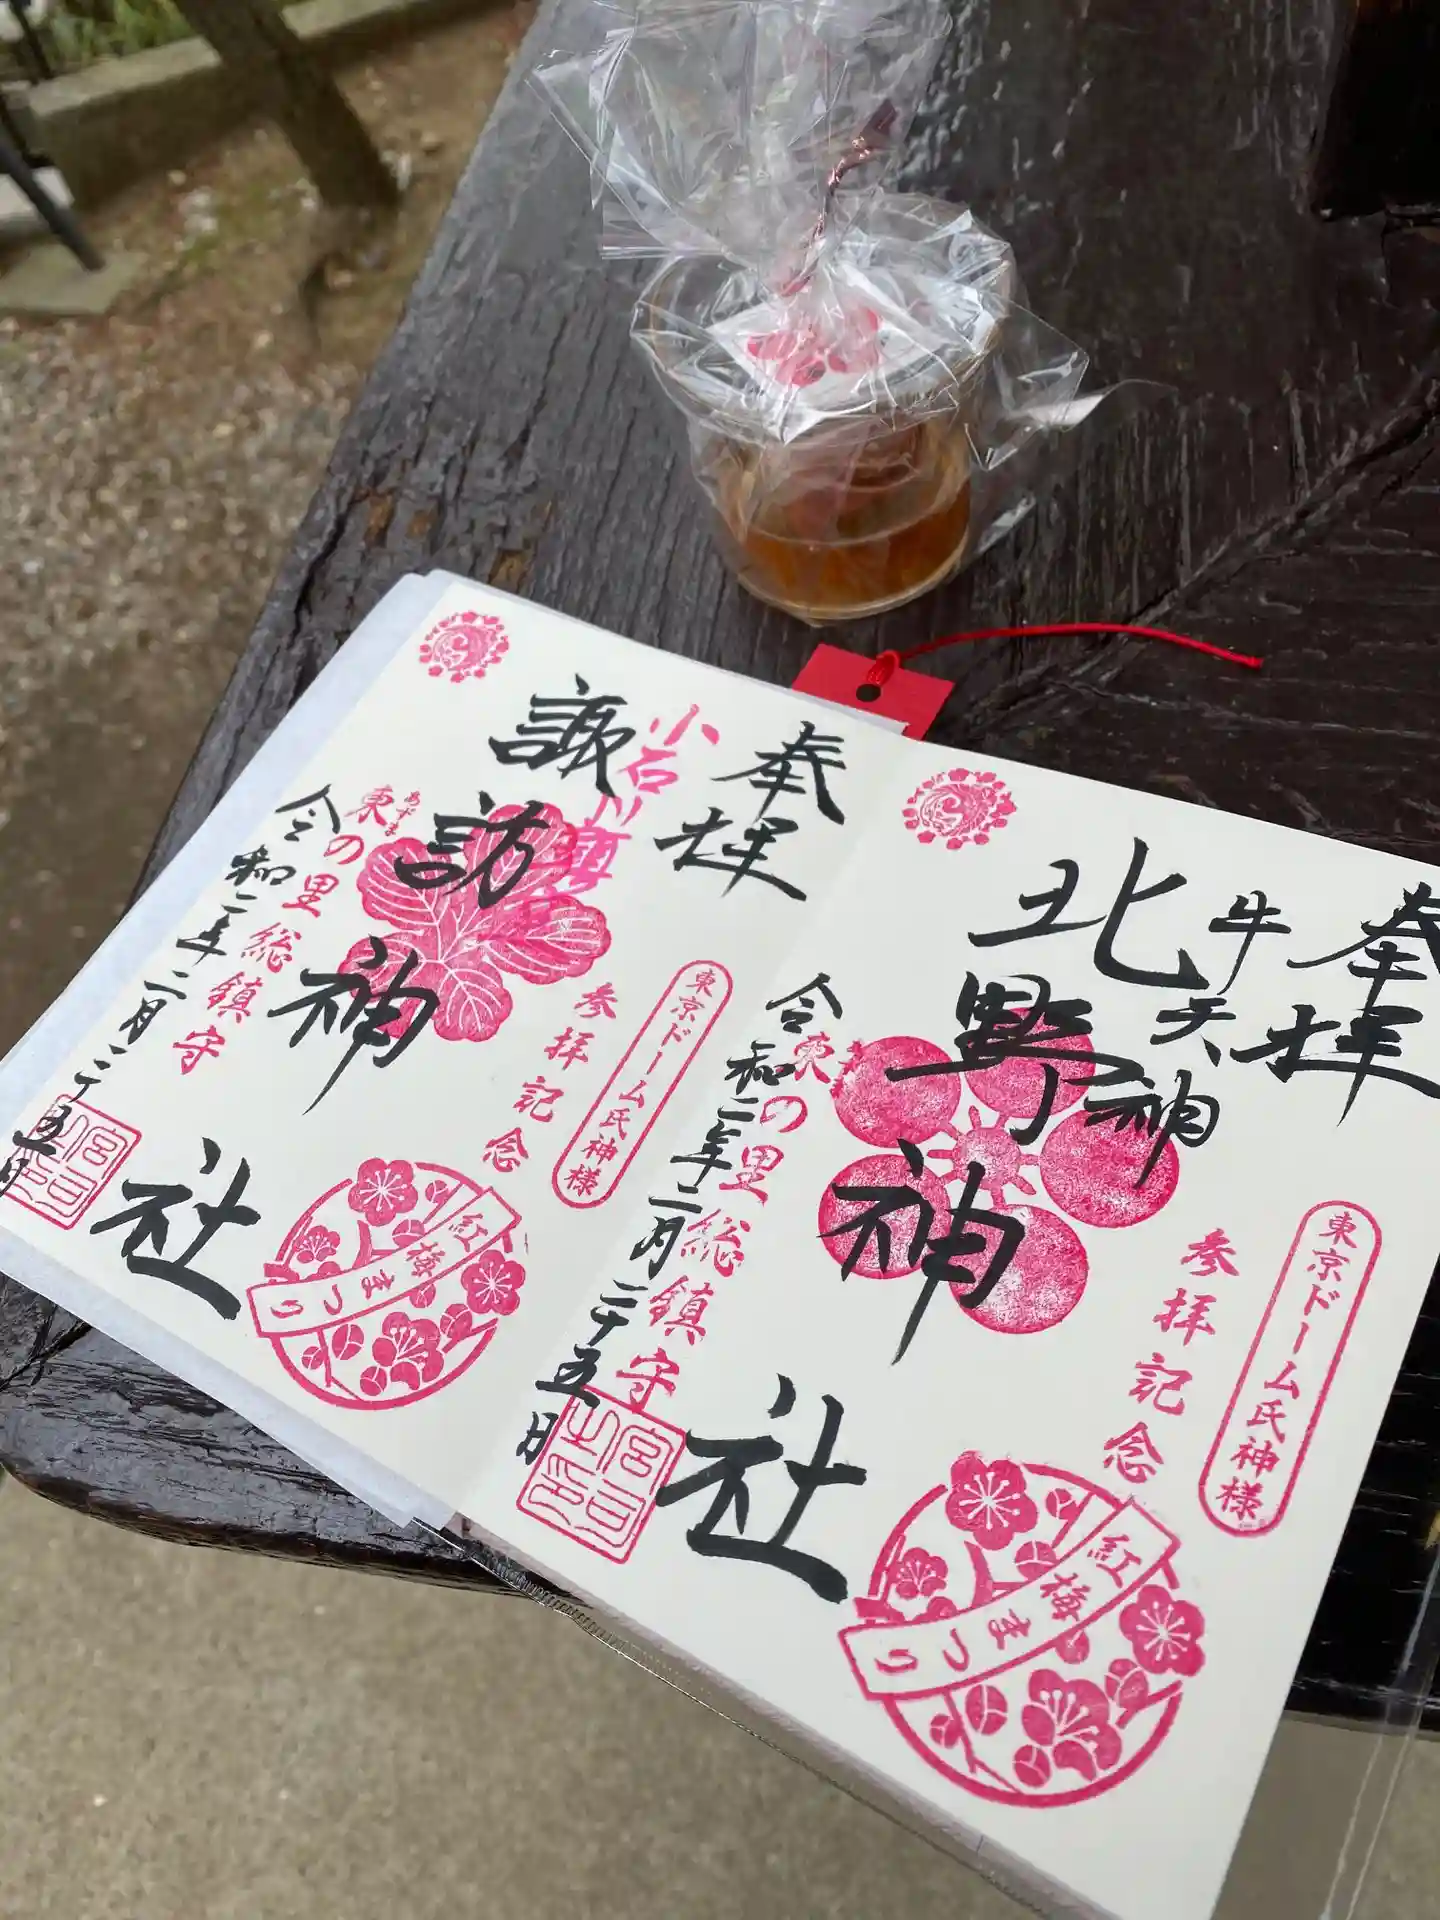 奉拝
牛天神
北野神社
東京ドーム氏神様
参拝記念
紅梅まつり
東の里総鎮守
令和二年二月二十五日
奉拝
小石川
諏訪神社
東京ドーム氏神様
参拝記念
紅梅まつり
あずま
東の里総鎮守
令和二年二月二十五日